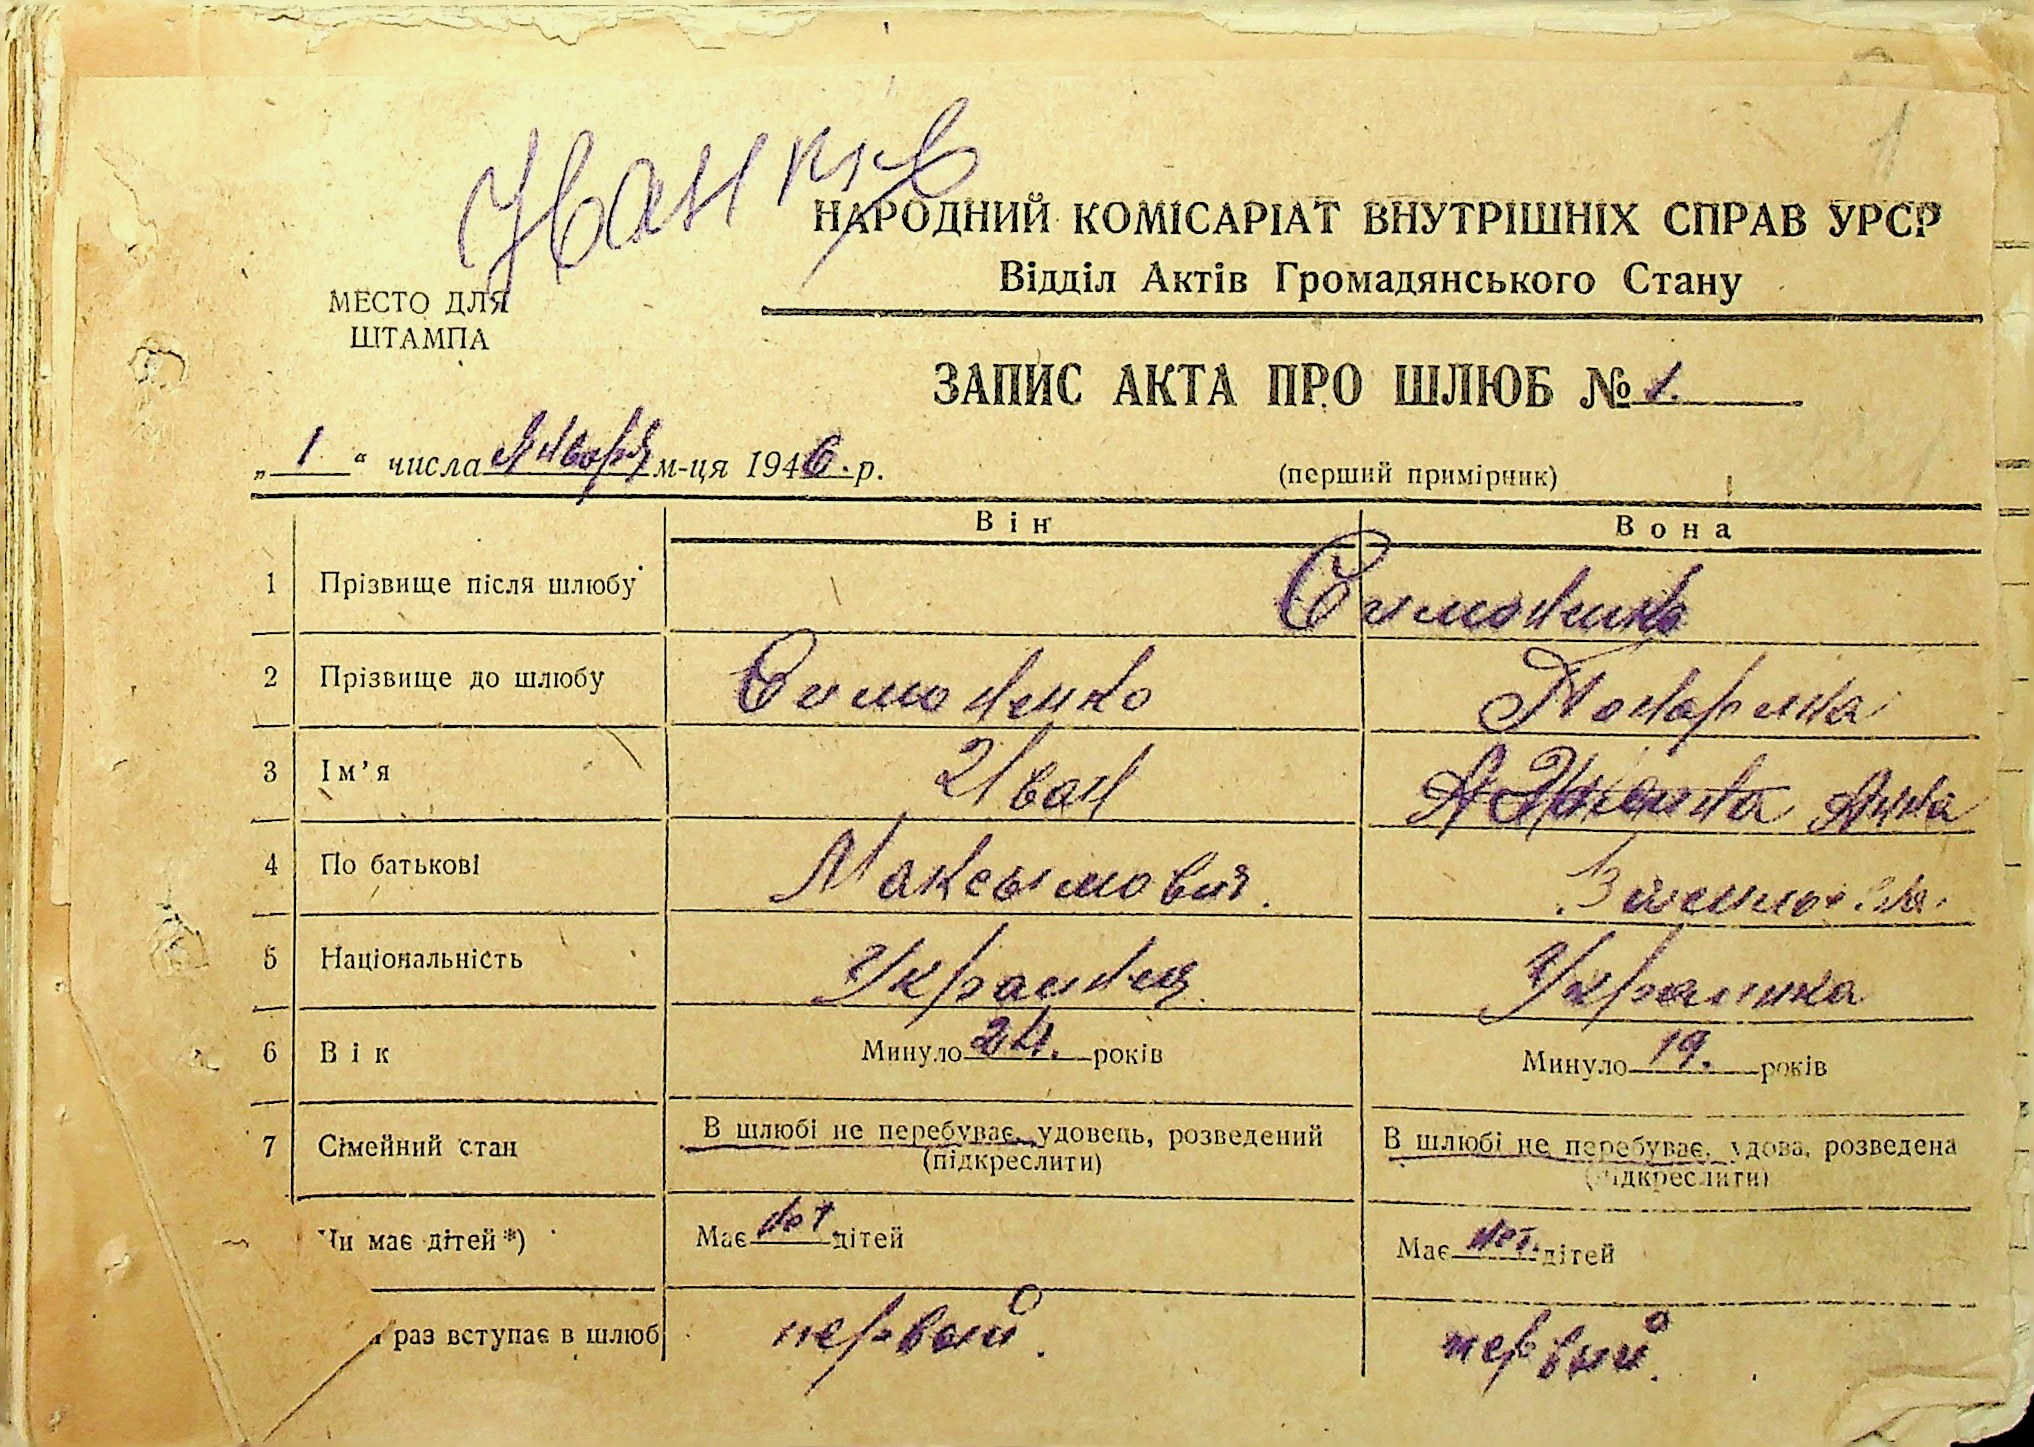 Иванків
1
НАРОДНИЙ КОМІСАРІАТ ВНУТРІШНІХ СПРАВ УРСР
Відділ Актів Громадянського Стану
МЕСТО ДЛЯ
ШТАМПА
ЗАПИС АКТА ПРО ШЛЮБ № 1.
„ 1 “ числа Января м-ця 1946. р.
(перший примірник)
Він Вона
1 Прізвище після шлюбу Симоненко
2 Прізвище до шлюбу Симоненко
3 Ім’я Иван Анна
4 По батькові Максымович.
5 Національність Украинец Украинка
6 Вік Минуло 24. років Минуло 19. років
7 Сімейний стан В шлюбі не перебуває, удовець, розведений В шлюбі не перебуває, удова, розведена
(підкреслити) (підкреслити)
Чи має дітей *) Має нет дітей Має нет. дітей
раз вступає в шлюб первый. первый.